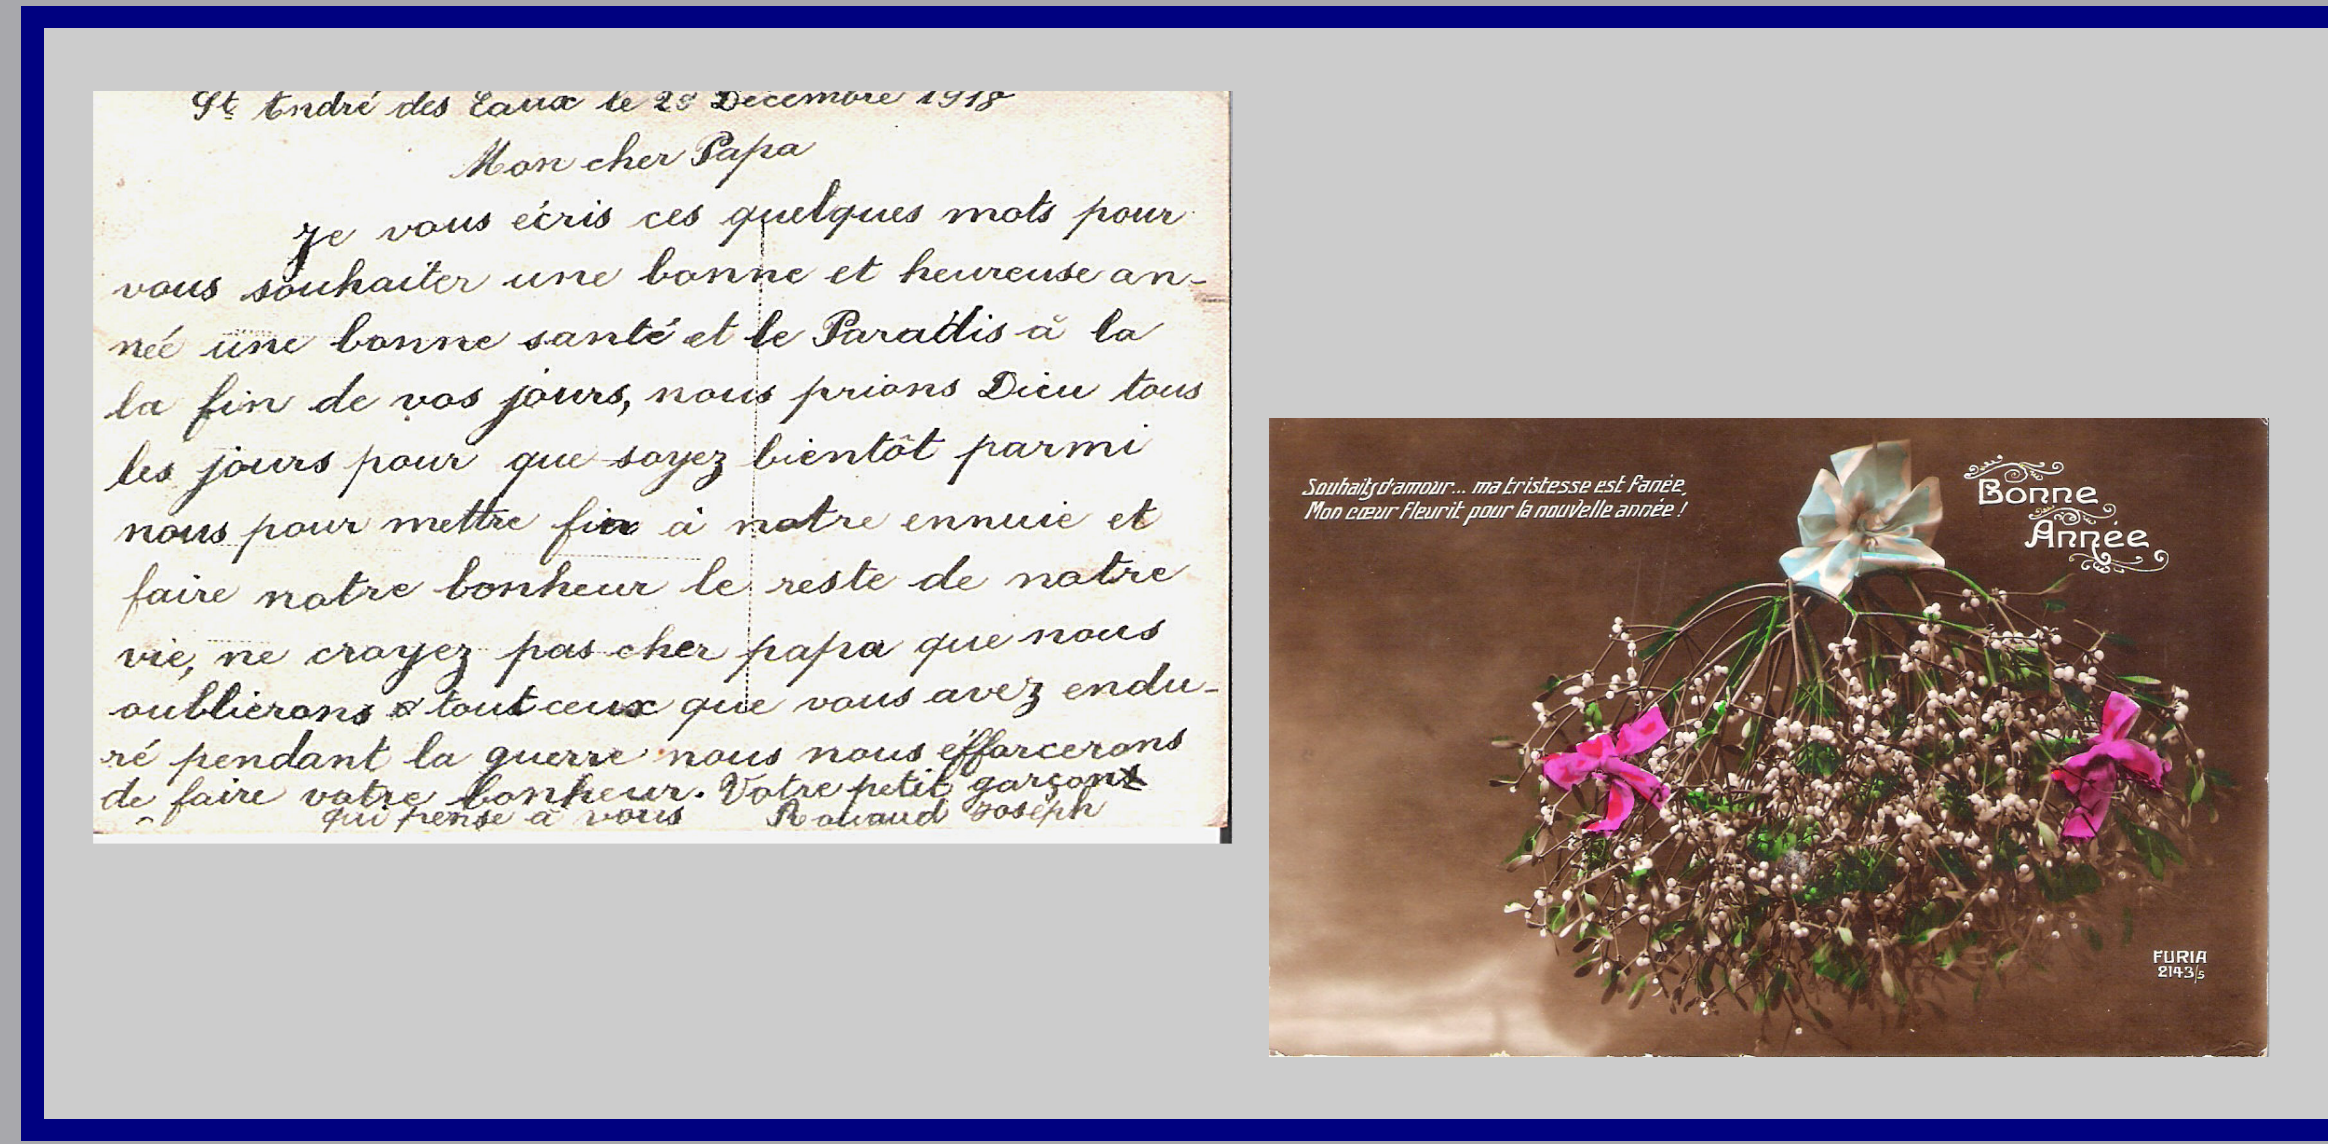 St André des Eaux le 28 Décembre 1918
Mon cher Papa
Je vous écris ces quelques mots pour
vous souhaiter une bonne et heureuse an-
neé une bonne santé et le Paradis à la
la fin de vos jours, nous prions Dieu tous
les jours pour que soyez bientôt parmi
nous pour mettre fin à notre ennuie et
faire notre bonheur le reste de notre
vie, ne croyez pas cher papa que nous
oublierons tout ceux que vous avez endu-
ré pendant la guerre nous nous éfforcerons
de faire votre bonheur. Votre petit garçon
qui pense à vous Rouaud Joseph
Souhaits d'amour... ma tristesse est fanée,
Mon cœur fleurit pour la nouvelle année !
Bonne
Année
FURIA
2143/5